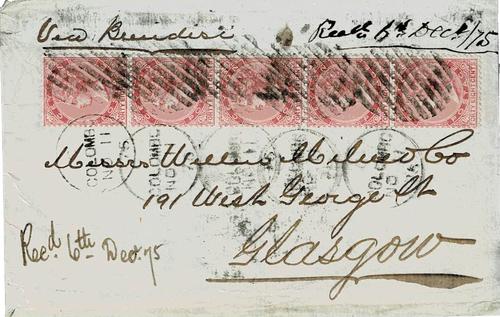 Via Brindisi
Recd. 6th Dec/75
COLOMBO
NO 11
75
COLOMBO
NO
COLOMBO
NO
Messrs William Milne & Co
191 West George St
Glasgow
Recd. 6th Dec. 75